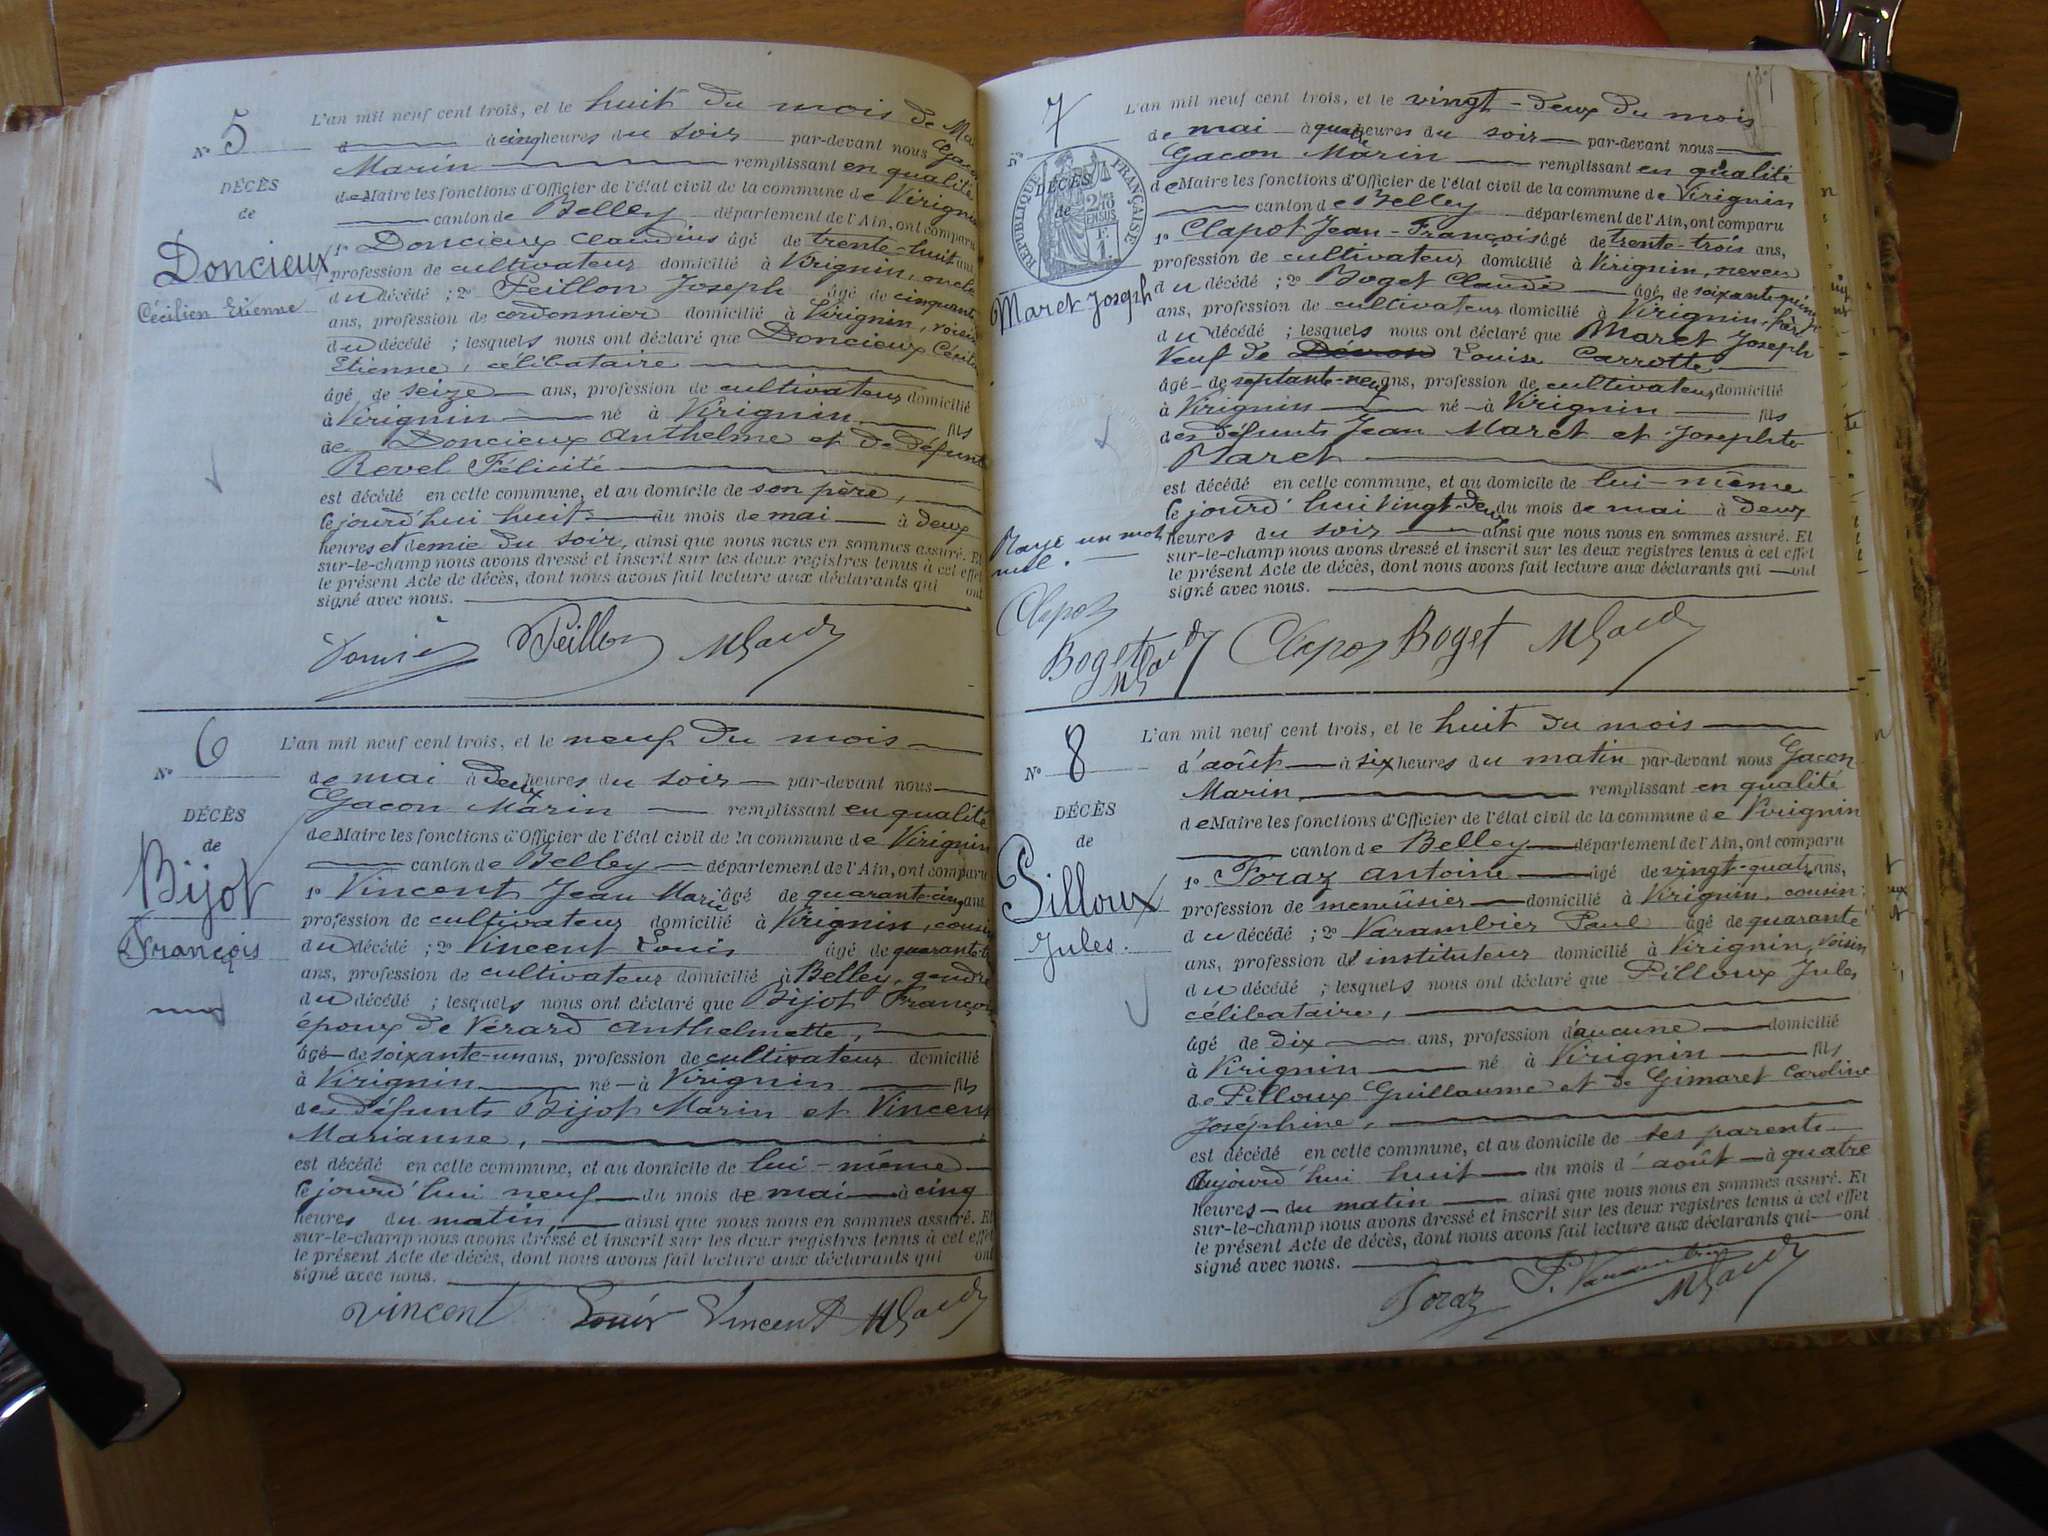 N° 5
DÉCÈS
de
Doncieux
Cécilien Etienne
L'an mil neuf cent trois, et le huit du mois de Mai
à cinq heures du soir par-devant nous Gacon
Marin remplissant en qualité
de Maire les fonctions d'Officier de l'état civil de la commune de Virignin
canton de Belley département de l'Ain, ont comparu
1° Doncieux Claudius âgé de trente-huit ans
profession de cultivateur domicilié à Virignin, oncle
du décédé ; 2° Peillon Joseph âgé de cinquante
ans, profession de cordonnier domicilié à Virignin, voisin
du décédé ; lesquels nous ont déclaré que Doncieux Cécilien
Etienne, célibataire
âgé de seize ans, profession de cultivateur domicilié
à Virignin né à Virignin fils
de Doncieux Anthelme et de défunte
Revel Félicité
est décédé en cette commune, et au domicile de son père,
le jourd'hui huit du mois de mai à deux
heures et demie du soir, ainsi que nous nous en sommes assuré. Et
sur-le-champ nous avons dressé et inscrit sur les deux registres tenus à cet effet
le présent Acte de décès, dont nous avons fait lecture aux déclarants qui ont
signé avec nous.
Peillon MGacon
N° 6
DÉCÈS
de
Bijot
François
L'an mil neuf cent trois, et le neuf du mois
de mai à deux heures du soir par-devant nous
Gacon Marin remplissant en qualité
de Maire les fonctions d'Officier de l'état civil de la commune de Virignin
canton de Belley département de l'Ain, ont comparu
1° Vincent Jean Marie âgé de quarante-cinq ans
profession de cultivateur domicilié à Virignin, cousin
du décédé ; 2° Vincent Louis âgé de
ans, profession de cultivateur domicilié à Belley, gendre
du décédé ; lesquels nous ont déclaré que Bijot François
époux de Vérard Anthelmette,
âgé de soixante-un ans, profession de cultivateur domicilié
à Virignin né à Virignin fils
des défunts Bijot Marin et Vincent
Marianne,
est décédé en cette commune, et au domicile de lui-même
le jourd'hui neuf du mois de mai à cinq
heures du matin, ainsi que nous nous en sommes assuré. Et
sur-le-champ nous avons dressé et inscrit sur les deux registres tenus à cet effet
le présent Acte de décès, dont nous avons fait lecture aux déclarants qui ont
signé avec nous.
Vincent Louis Vincent MGacon
N° 7
DÉCÈS
de
RÉPUBLIQUE FRANÇAISE
2/10 EN SUS
Maret Joseph
L'an mil neuf cent trois, et le vingt-deux du mois
de mai à quatre heures du soir par-devant nous
Gacon Marin remplissant en qualité
de Maire les fonctions d'Officier de l'état civil de la commune de Virignin
canton de Belley département de l'Ain, ont comparu
1° Clapot Jean-François âgé de trente-trois ans,
profession de cultivateur domicilié à Virignin, neveu
du décédé ; 2° Boget Claude âgé de soixante-quinze
ans, profession de cultivateur domicilié à Virignin,
du décédé ; lesquels nous ont déclaré que Maret Joseph
veuf de Louise Carrotte
âgé de septante-neuf ans, profession de cultivateur domicilié
à Virignin né à Virignin fils
des défunts Jean Maret et Josephte
Maret
est décédé en cette commune, et au domicile de lui-même
le jourd'hui vingt-deux du mois de mai à deux
heures du soir ainsi que nous nous en sommes assuré. Et
sur-le-champ nous avons dressé et inscrit sur les deux registres tenus à cet effet
le présent Acte de décès, dont nous avons fait lecture aux déclarants qui ont
signé avec nous.
Rayé un mot
nul.
Clapot
Boget
MGacon
Clapot Boget MGacon
N° 8
DÉCÈS
de
Pilloux
Jules.
L'an mil neuf cent trois, et le huit du mois
d'août à six heures du matin par-devant nous Gacon
Marin remplissant en qualité
de Maire les fonctions d'Officier de l'état civil de la commune de Virignin
canton de Belley département de l'Ain, ont comparu
1° Foraz Antoine âgé de vingt-quatre ans,
profession de menuisier domicilié à Virignin, cousin
du décédé ; 2° Varambier Paul âgé de quarante
ans, profession d'instituteur domicilié à Virignin, voisin
du décédé ; lesquels nous ont déclaré que Pilloux Jules
célibataire,
âgé de dix ans, profession d'aucune domicilié
à Virignin né à Virignin fils
de Pilloux Guillaume et de Gimaret Caroline
Joséphine,
est décédé en cette commune, et au domicile de ses parents
Aujourd'hui huit du mois d'août à quatre
heures du matin ainsi que nous nous en sommes assuré. Et
sur-le-champ nous avons dressé et inscrit sur les deux registres tenus à cet effet
le présent Acte de décès, dont nous avons fait lecture aux déclarants qui ont
signé avec nous.
Foraz P. Varambier MGacon